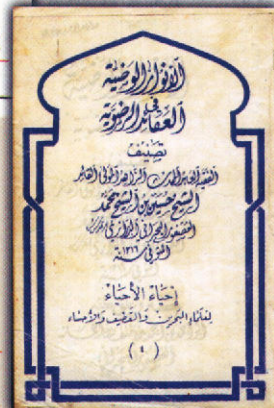 الأنوار الوضية
في
العقائد الرضوية
تصنيف
الفقيه العالم المحدث الزاهد المولى القائد
الشيخ حسين بن الشيخ محمد
العصفور البحراني الدرازي
المتوفى سنة ١٢١٦
إحياء الأحياء
لعلماء البحرين والقطيف والأحساء
( ٤ )